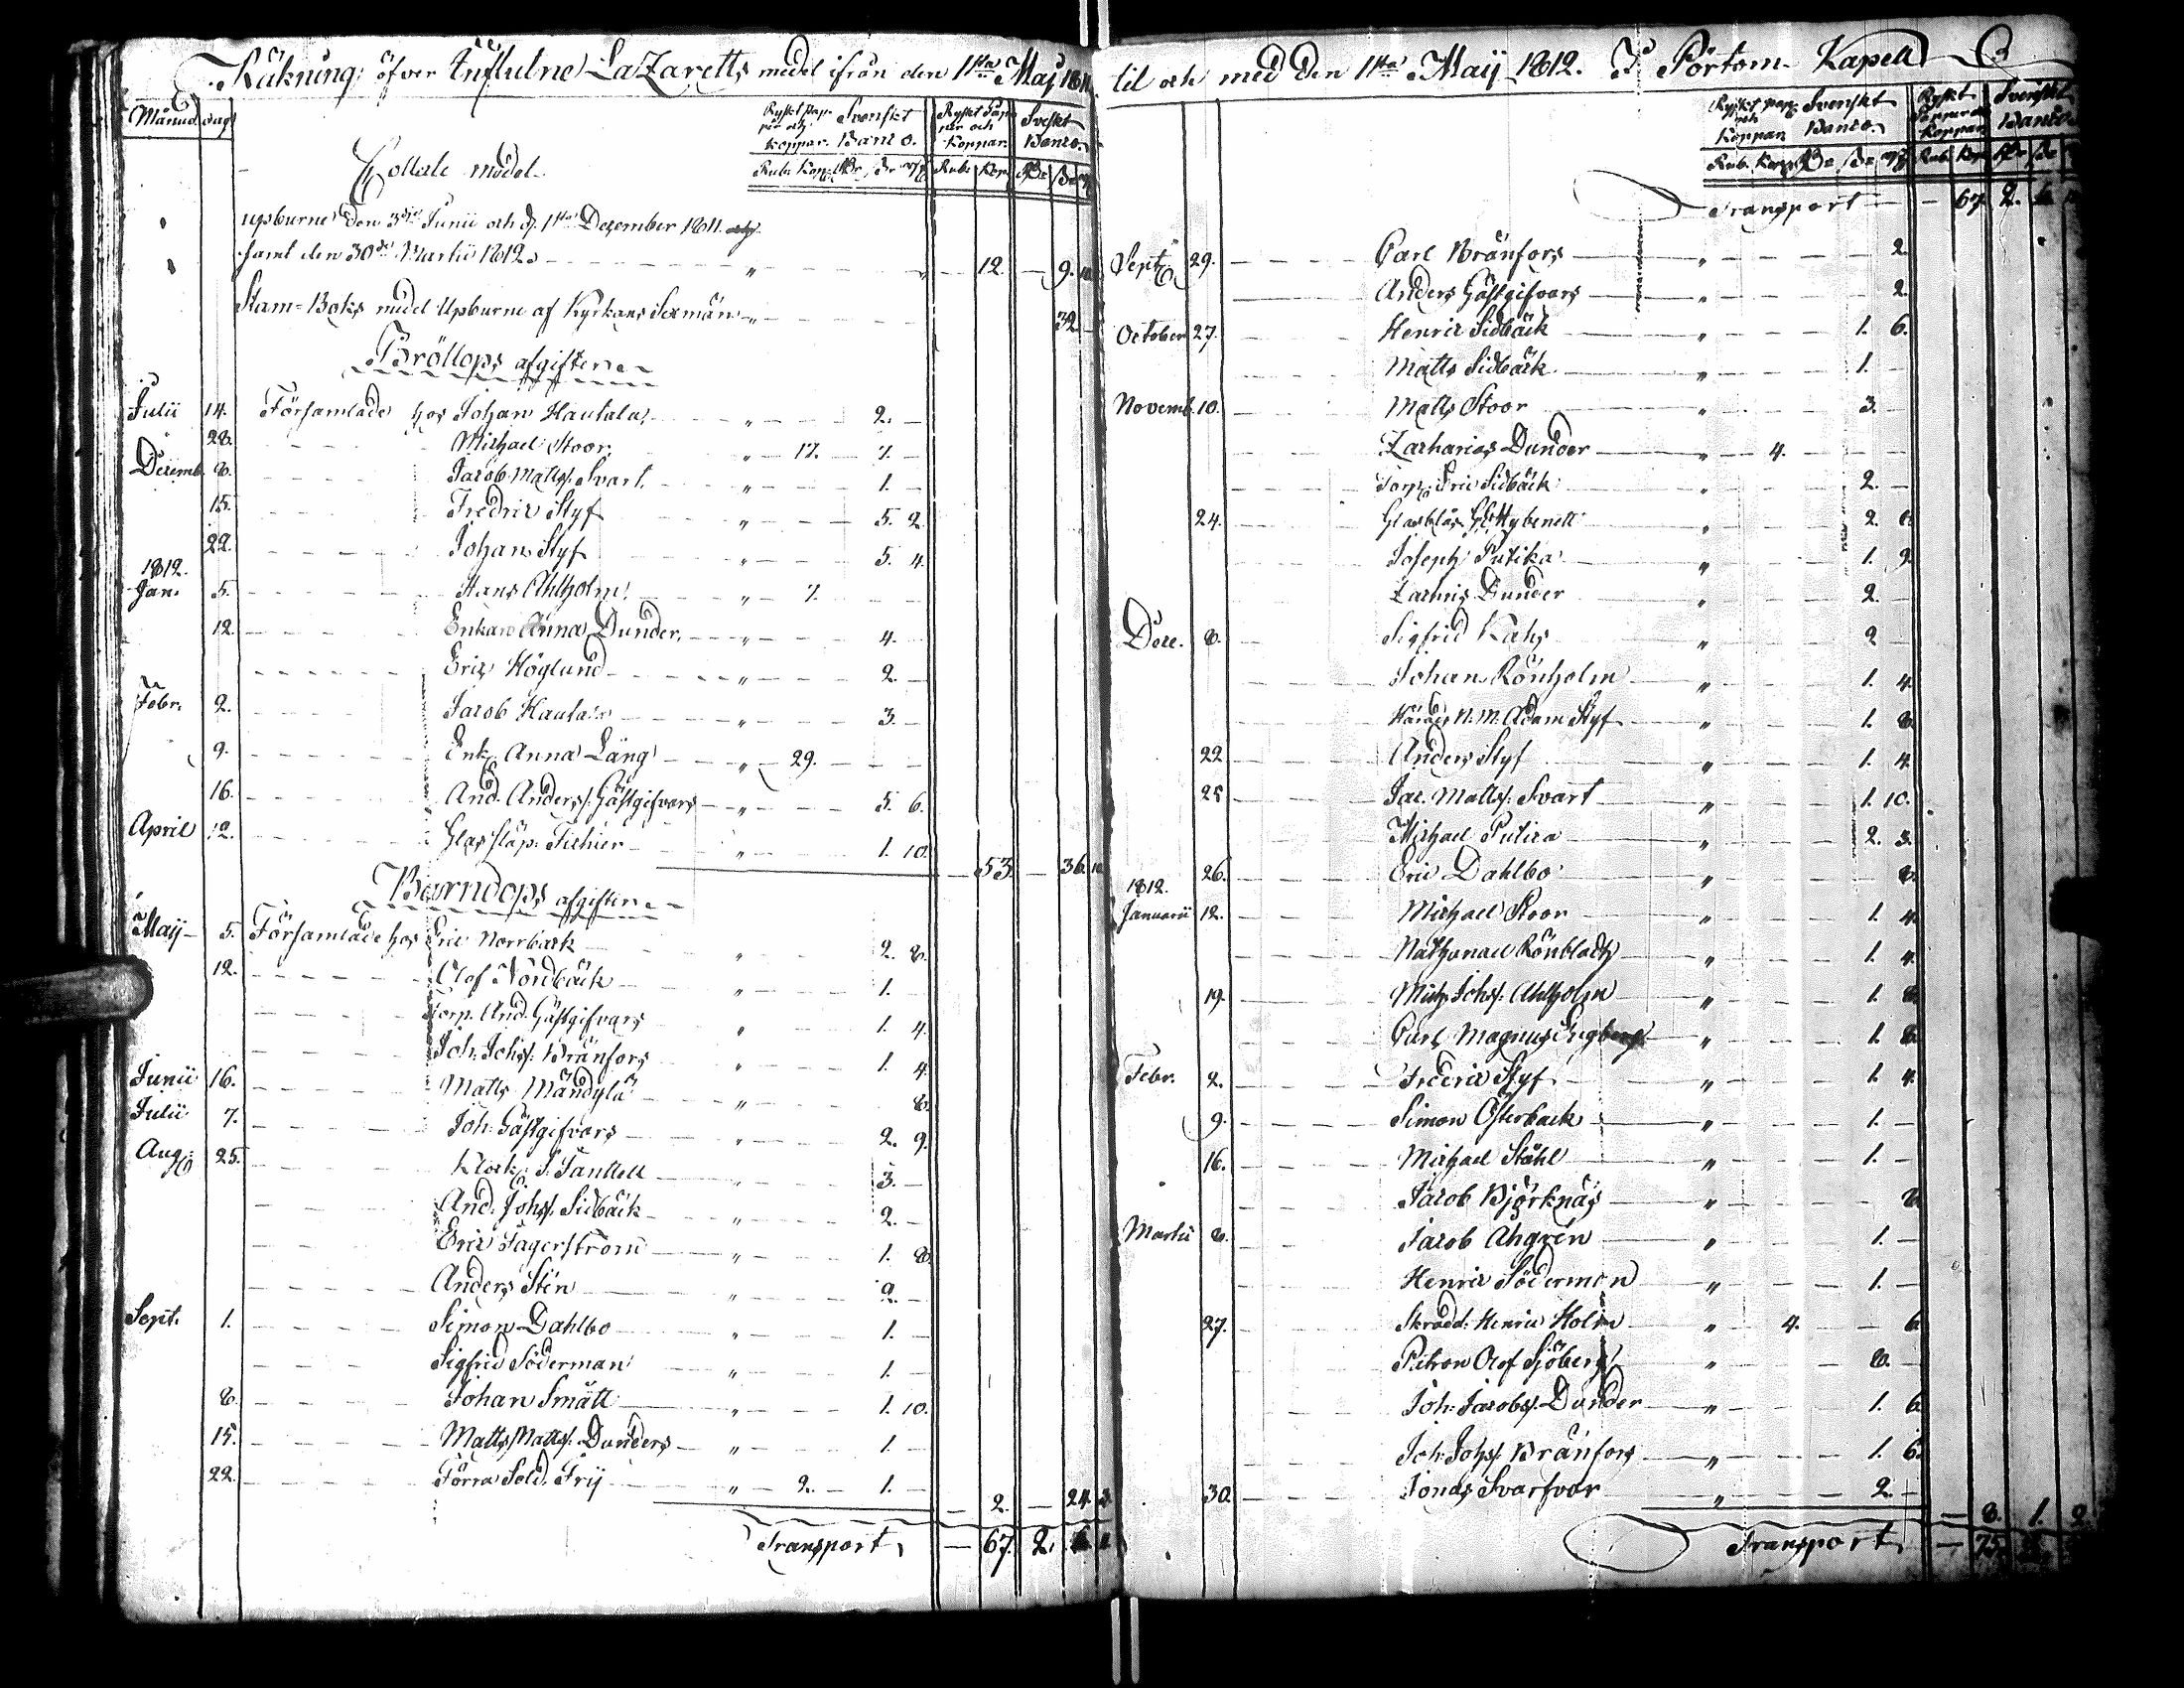 Räkning öfver Influtne LaZaretts medel ifrån den 1sta Maj 1811
Månad. dag. Ryskt pap- per och Koppar. Svenskt Banco. Ryskt Pap- per och Koppar. Svenskt Banco.
Rub. Kop. Rub. Kop.
Collect medel.
upburne den 3dje Junii och d. 1sta December 1811.
samt den 30de Martii 1812. 12. 9. 10
Stam-Boks medel Upburne af Kyrkans Sexmän 32.
Bröllops afgifterne
Julii 14. Församlade hos Johan Hautala, 2.
28. Michael Stoor. 17. 7.
Decemb. 8. Jacob Matts. Svart. 1.
15. Fredric Styf 5. 2.
22. Johan Styf 5. 4.
1812.
Jan. 5. Hans Ahlholm 7.
12. Enkan Anna Dunder. 4.
Eric Höglund 2.
Febr. 2. Jacob Hautala 3.
9. Enk. Anna Läng 29.
16. And. Anders. Gästgifvars 5. 6.
April 12. Glassläp. Fichier 1. 10. 53. 36. 10
Barndops afgifterne
Maij 5. Församlade hos Eric Norrback 2. 8.
12. Olof Nordbäck 1.
Torp. And. Gästgifvars 1. 4.
Joh. Johs. Bränfors 1. 4.
Junii 16. Matts Mändylä 8.
Julii 7. Joh. Gästgifvars 2. 9.
Aug. 25. Klock. J. Tanttell 3.
And. Johs. Sidbäck 2.
Eric Fagerström 1. 8.
Anders Stén 2.
Sept. 1. Simon Dahlbo 1.
Sigfrid Söderman 1.
8. Johan Smätt 1. 10.
15. Matts Matts. Dunders 1.
22. Förra Sold. Frij 2. 1. 2. 24. 3.
Transport 67. 2. 6.
til och med den 1sta Maij 1812. I Pörtom Kapell
Ryskt pap. och Koppar Svenskt Banco. Ryskt Papper och Koppar Svenskt Banco
Rub. Kop. Rub. Kop.
Transport 67. 2. 6.
Sept. 29. Carl Bränfors 2.
Anders Gästgifvars 2.
October 27. Henric Sidbäck 1. 6.
Matts Sidbäck 1.
Novemb. 10. Matts Stoor 3.
Zacharias Dunder 4.
Torp. Eric Sidbäck 2.
24. Glasblås. 2. 6.
Joseph Putika 1. 2.
Zachris Dunder 2.
Dece. 8. Sigfrid Kahs 2
Johan Rönholm 1. 4.
Härads N. M. Adam Styf 1. 8.
22 Anders Styf 1. 4.
25 Jac. Matts. Svart 1. 10.
Michael Putica 2. 3.
26. Eric Dahlbo 8.
1812.
Januarii 12. Michael Stoor 1. 4.
Nathanael Rönbladh 1. 4.
19. Mich. Johs. Ahlholm 1. 8.
Carl Magnus Engberg 1. 8.
Febr. 2. Fredric Styf 1. 4.
9. Simon Österback 1.
16. Michael Stähl 1.
Jacob Björknäs 8.
Martii 8. Jacob Ahgrén 1.
Henric Söderman 1.
27. Skrädd. Henric Holm 4. 6.
Patron Olof Sjöberg 8.
Joh. Jacobs. Dunder 1. 6.
Joh. Johs. Bränfors 1. 6.
30. Jonas Svarfvar 2. 8. 1. 2.
Transport 75.